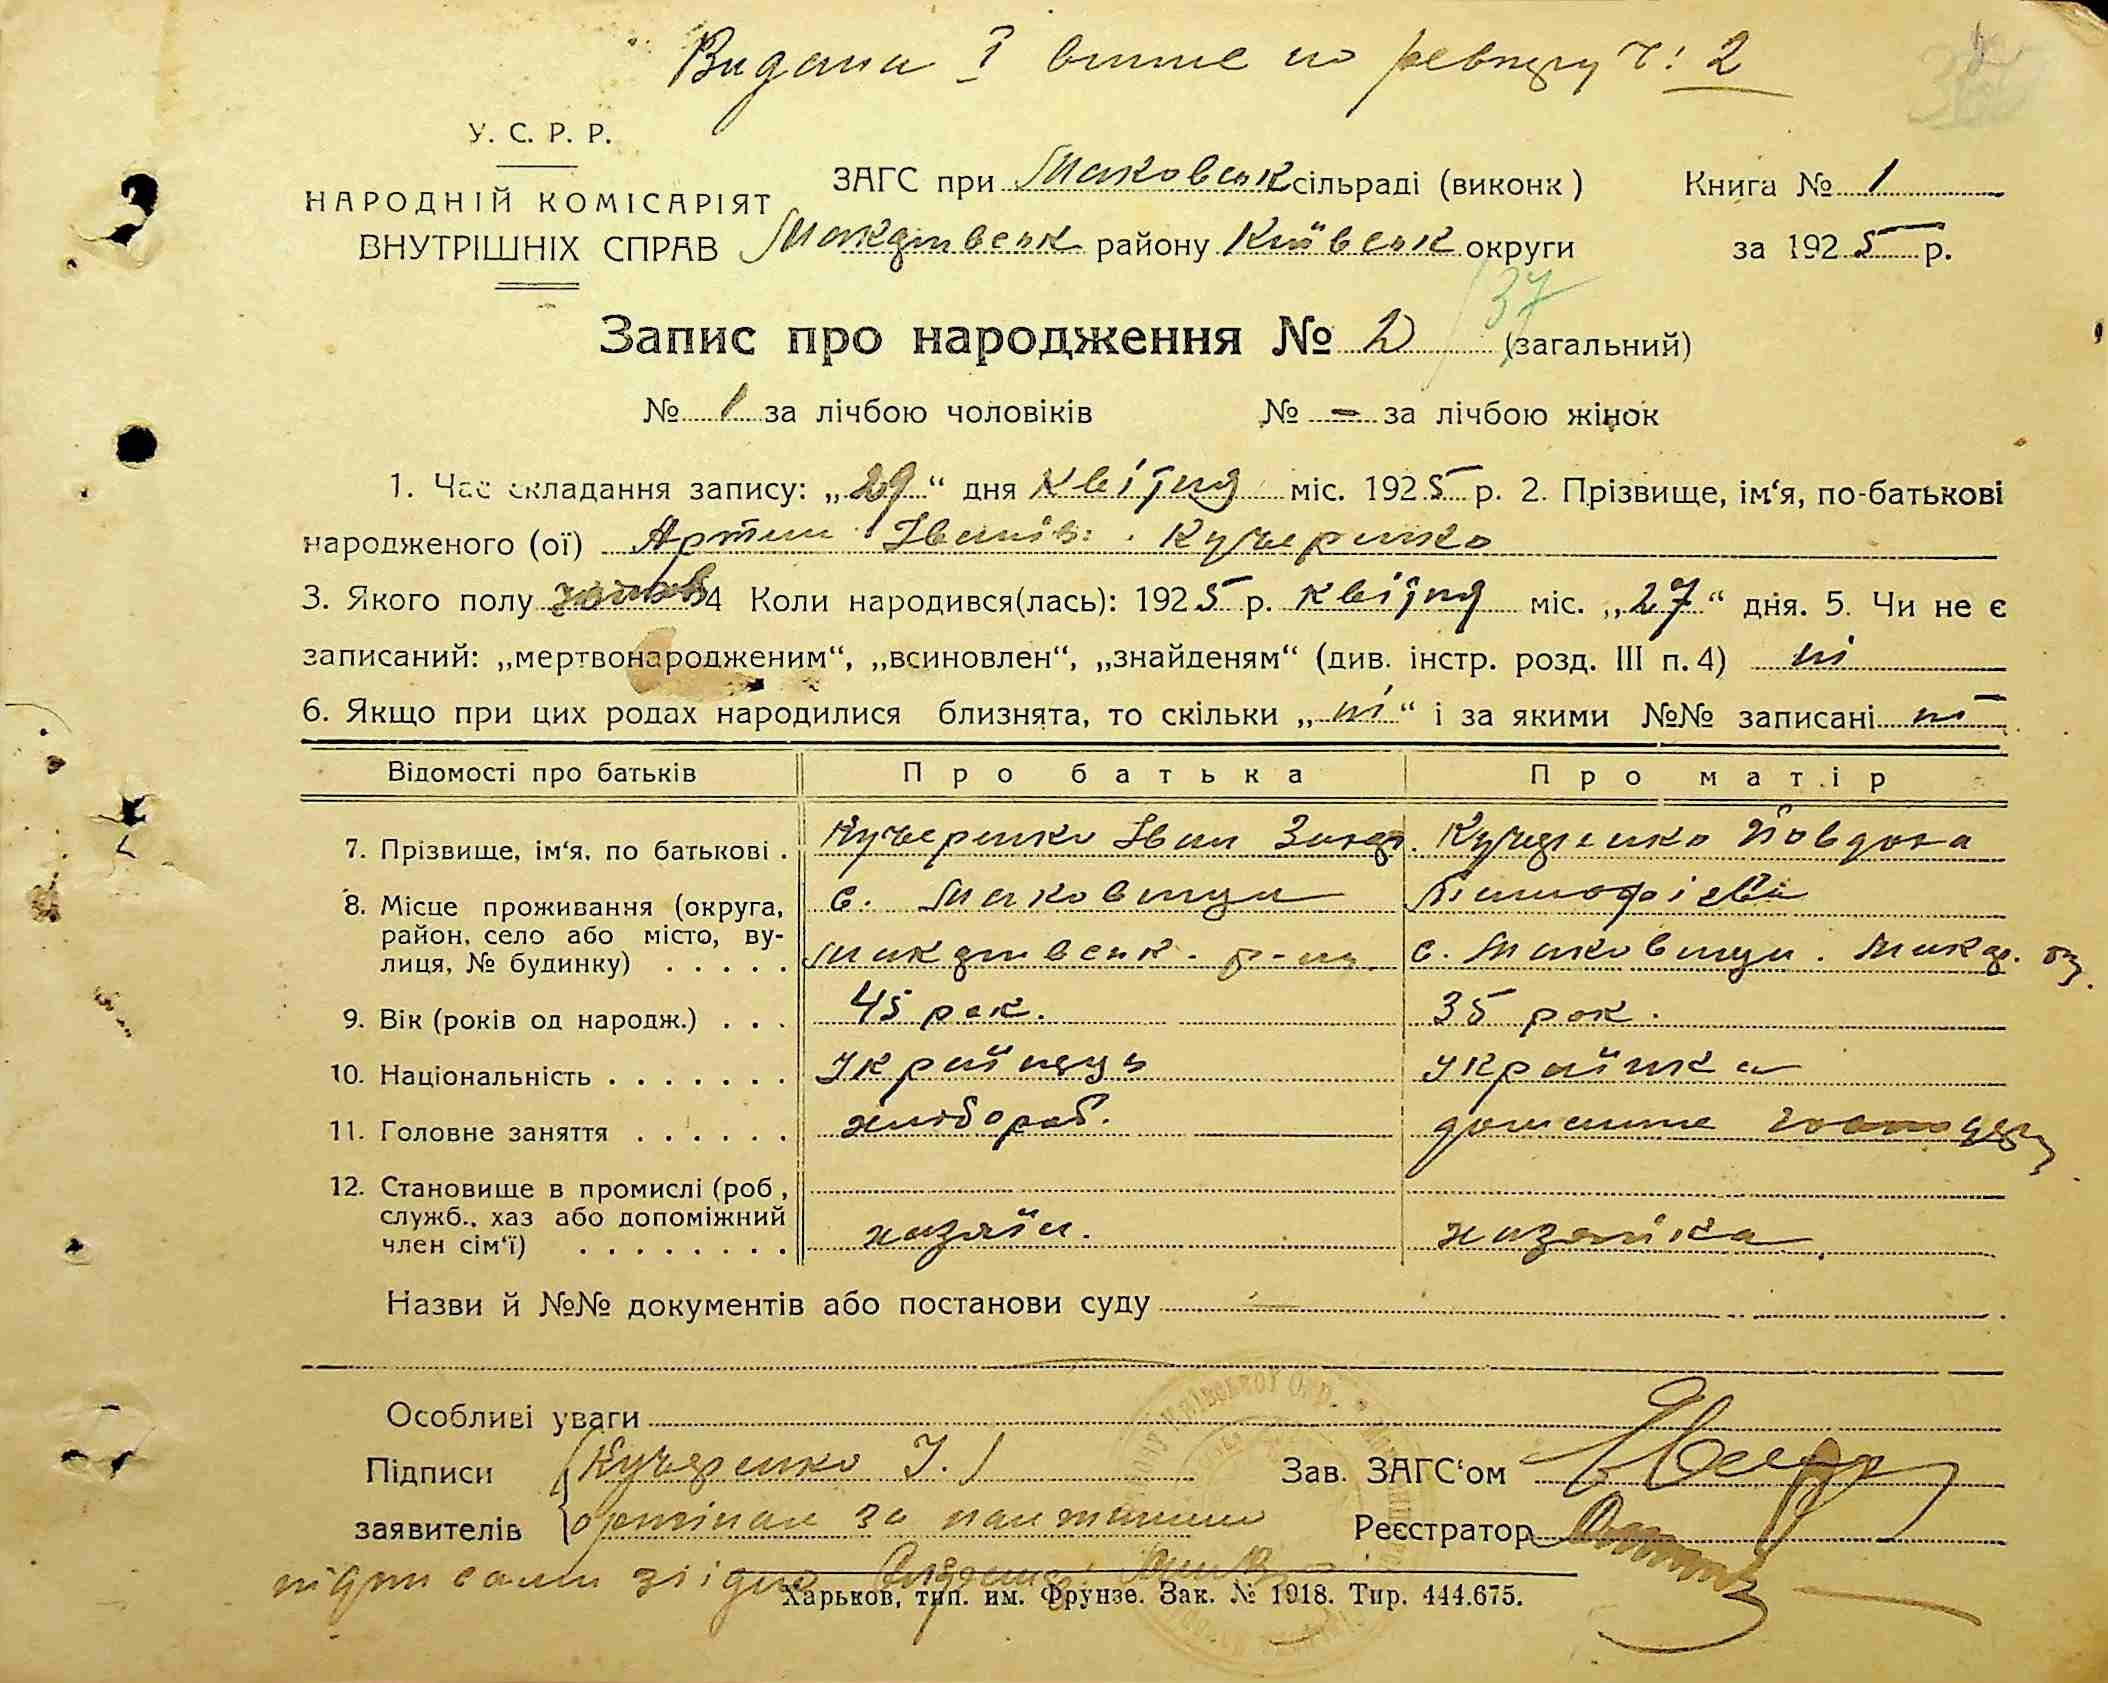 Видана І випис по реєстру ч: 2
У. С. Р. Р.
НАРОДНІЙ КОМІСАРІЯТ
ВНУТРІШНІХ СПРАВ
ЗАГС при Маковськ сільраді (виконк)
Макарівськ району Київськ округи
Книга № 1
за 1925 р.
Запис про народження № 2 (загальний)
37
№ 1 за лічбою чоловіків № = за лічбою жінок
1. Час складання запису: „29“ дня квітня міс. 1925 р. 2. Прізвище, ім‘я, по-батькові
народженого (ої) Артем Іванів: Кучеренко
3. Якого полу чолов 4 Коли народився(лась): 1925 р. квітня міс. „27“ дня. 5. Чи не є
записаний: „мертвонародженим“, „всиновлен“, „знайденям“ (див. інстр. розд. III п. 4) ні
6. Якщо при цих родах народилися близнята, то скільки „ні“ і за якими №№ записані ні
Відомості про батьків Про батька Про матір
7. Прізвище, ім‘я, по батькові . Кучеренко Іван Захар. Кучеренко Йовдоха
Тимофієва
8. Місце проживання (округа, район, село або місто, вулиця, № будинку) . . . . . с. Маковищи
Макарівськ. р-ну. с. Маковищи. Макар.
9. Вік (років од народж.) . . . 45 рок. 35 рок.
10. Національність . . . . . . . Українець Українка
11. Головне заняття . . . . . . хлібороб. домашне
12. Становище в промислі (роб, служб., хаз або допоміжний член сім‘ї) . . . . . . . . хазяїн. хазяйка.
Назви й №№ документів або постанови суду
Особливі уваги
Підписи заявителів Кучеренко І.
Зав. ЗАГС‘ом
Реєстратор
Харьков, тип. им. Фрунзе. Зак. № 1918. Тир. 444.675.